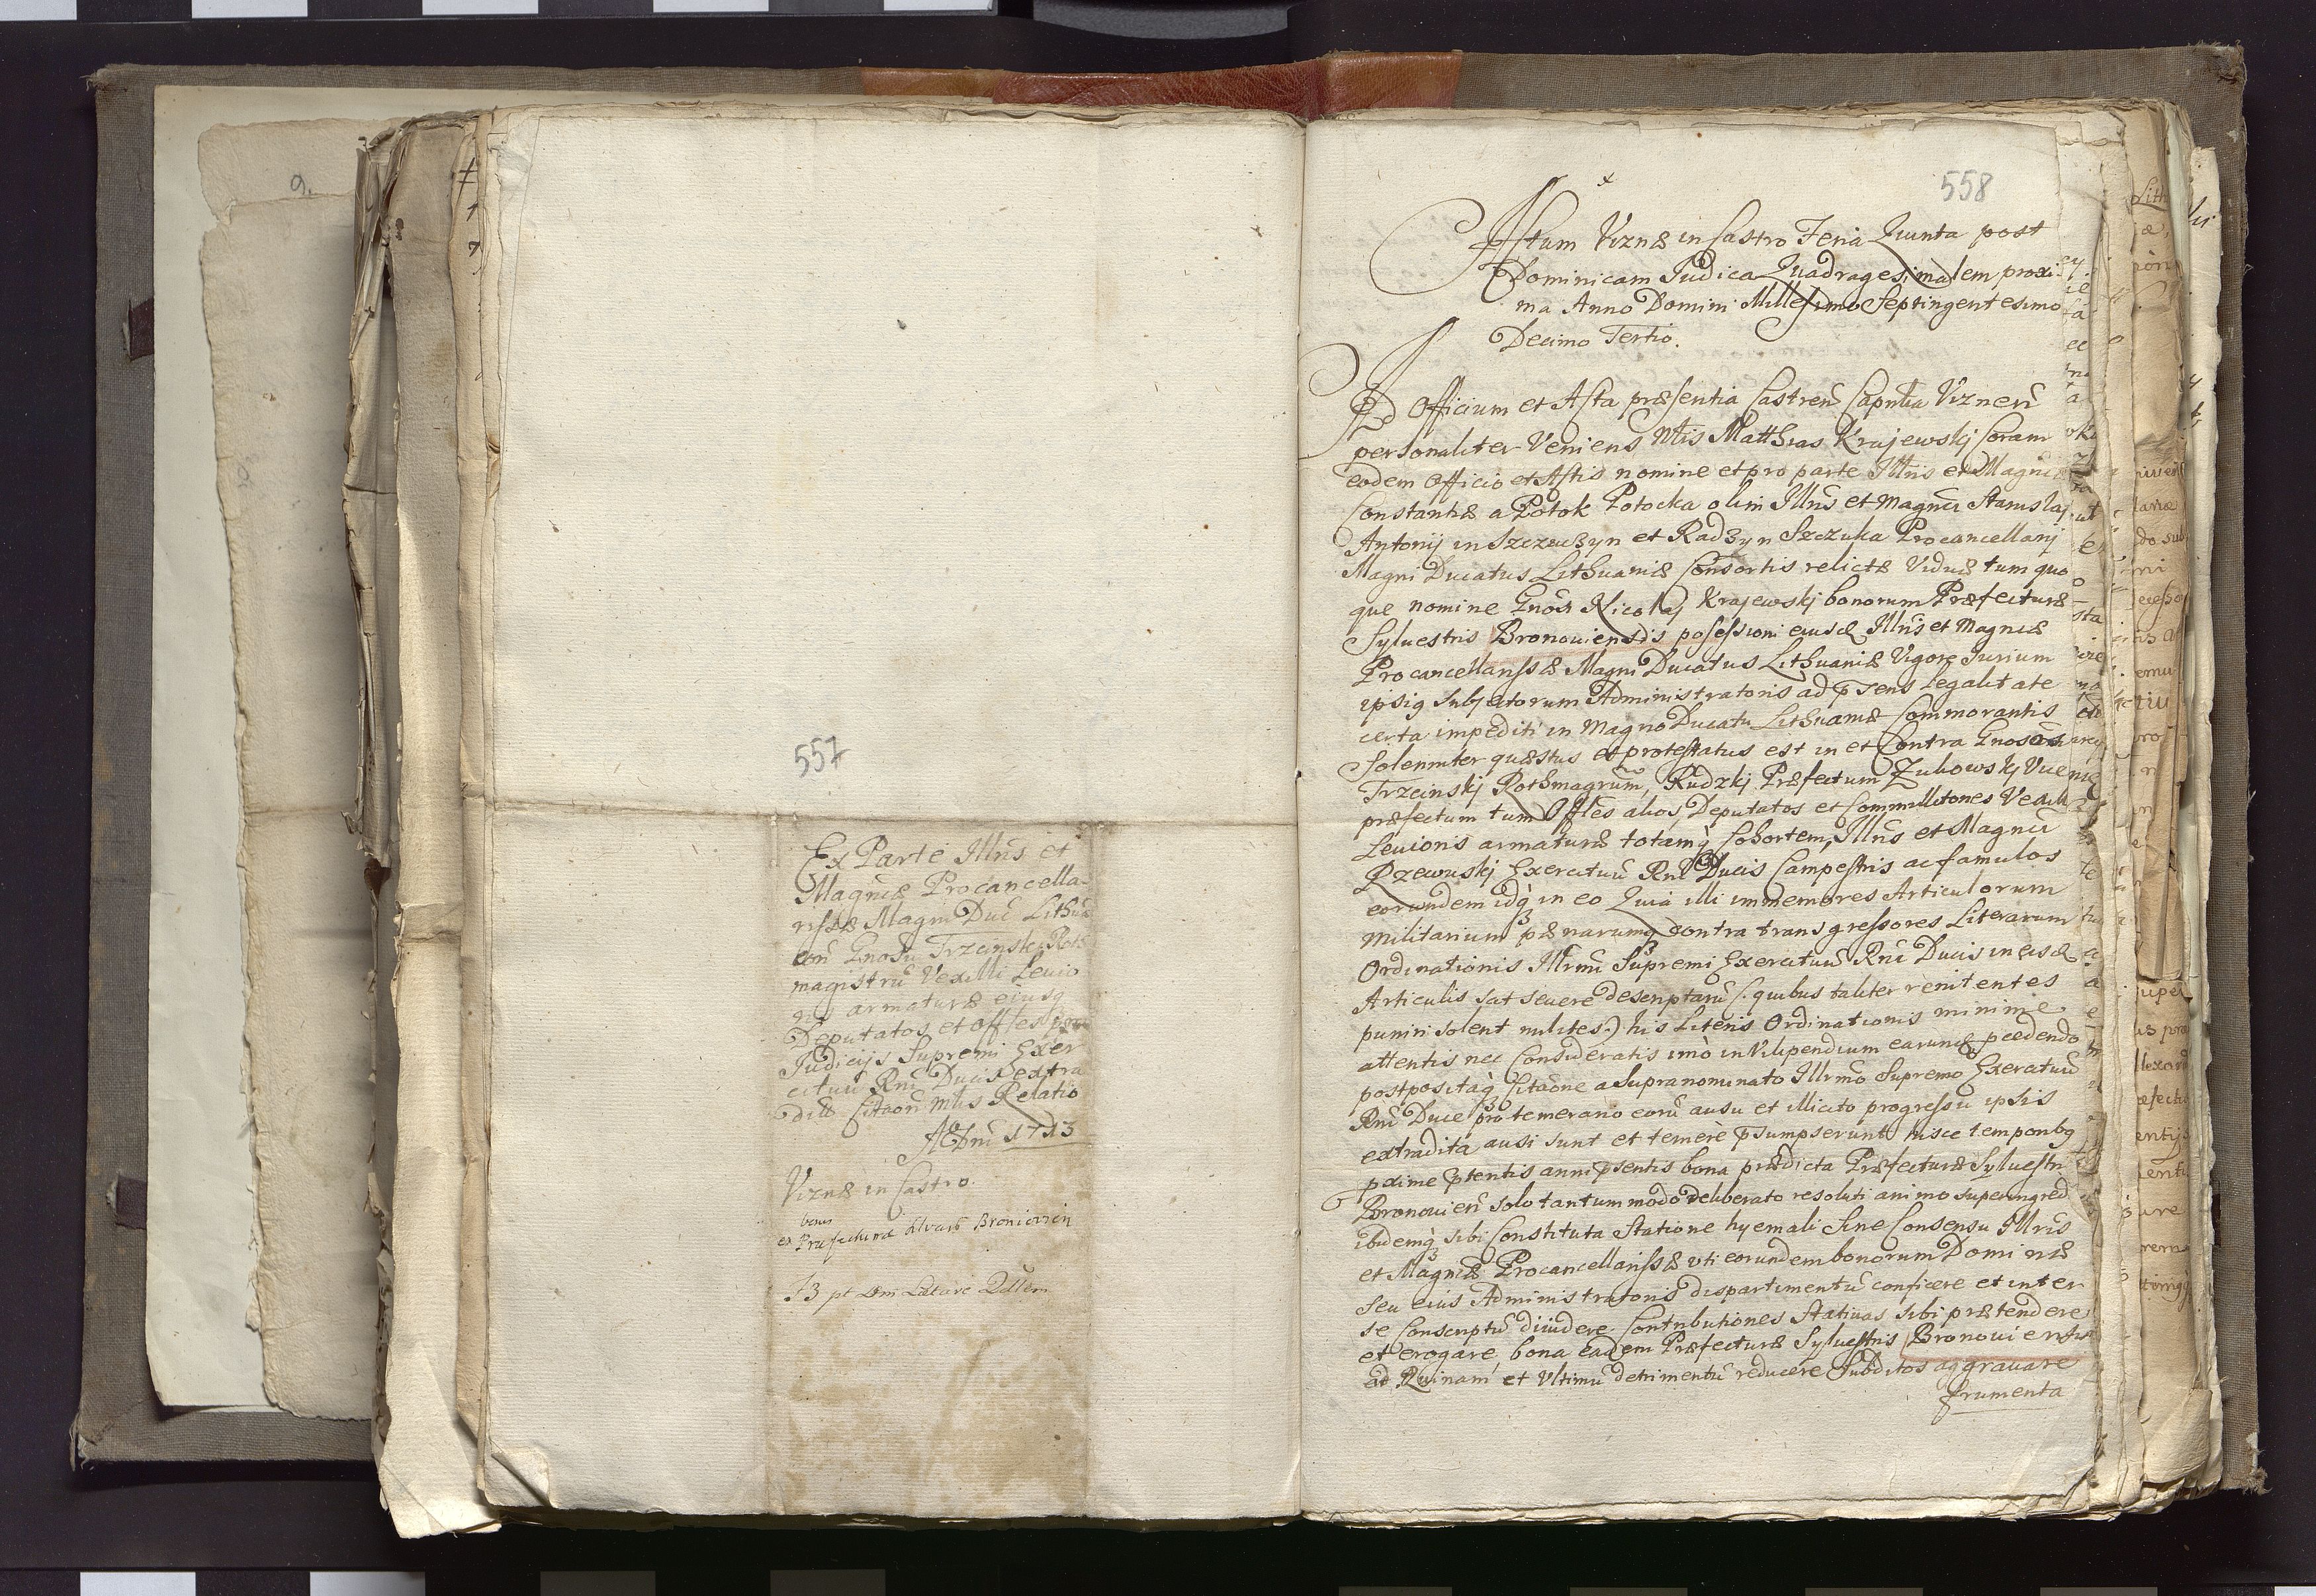 557
Ex Parte Illris et
Magncæ Procancella-
rissæ Magni Duc Lithua
con Gnosu Trzcinski Roth
magistrũ Vexilli Leuio
ris armaturæ eiusq
Deputatos et offles pro
Iudicijs Supremi Exer
cituũ Rni Ducis extra
ditæ Citaõn Mlis Relatio
A Dni 1713
Viznæ in Castro
bonis
ex Præfectura Silvaris Broniovien
F3 pt Dni Lætare Qdlem
558
Actum Viznæ in Castro Feria Quinta post
Dominicam Iudica Quadragesimalem proxi
ma Anno Domini Millesimo Septingentesimo
Decimo Tertio.
Ad Officium et Acta præsentia Castreñ Capnlia Vizneñ
personaliter Veniens Mlis Matthias Krajewskj Coram
eodem Officio et Actis nomine et pro parte Illris et Magncæ
Constantiæ a Potok Potocka olim Illris et Magnci Stanislaj
Antonij in Szczuczyn et Radzyn Szczuka Procancellarij
Magni Ducatus Lithuaniæ Consortis relictæ Viduæ tum quo
que nomine Gnosi Nicolaj Krajewskj bonorum Præfecturæ
Syluestris Bronouiensis possessioni eiusd Illris et Magncæ
Procancellarissæ Magni Ducatus Lithuaniæ Vigore Iurium
ipsig subjectorum Administratoris ad pñsens legalitate
certa impediti in Magno Ducatu Lithuaniæ Commorantis
Solenniter quæstus et protestatus est in et Contra Gnosos
Trzcinskj Rothmagrum, Rudzkj Præfectum Zukowskj Vice
præfectum tum Offles alios, Deputatos et Commilitones Vexilli
Leuioris armaturæ totamq Cohortem, Illris et Magnci
Rzewuskj Exercituũ Rni Ducis Campestris ac famulos
eorundem idq in eo Quia illi immemores Articulorum
militarium pænarumq contra transgressores Literarum
Ordinationis Illrmi Supremi Exercituũ Rni Ducis in eisd
Articulis sat seuere descriptarũ (: quibus taliter renitentes
puniri solent milites :) his Literis Ordinationis minime
attentis nec Consideratis imò in Vilipendium earund pcedendo
postpositaq Citaõne a Supranominato Illrmo Supremo Exercituũ
Rni Duce pro temerario eorũ ausu et illicito progressu ipsis
extradita ausi sunt et temerè psumpserunt hisce temporibg
pxime pteritis anni psentis bona prædicta Præfecturæ Syluestri
Bronouieñ solo tantummodo deliberato resoluti animo superingredi
ibidemq sibi Constituta Statione hyemali Sine Consensu Illris
et Magncæ Procancellarissæ uti eorundem bonorum Dominæ
seu eius Administratoris dispartimentũ conficere et inter
se Conscriptũ diuidere Contributiones Statiuas sibi prætendere
et erogare, bona eadem Præfecturæ Syluestris Bronouiensis
ad Ruinam et Vltimũ detrimentũ reducere Subditos aggrauare
frumenta